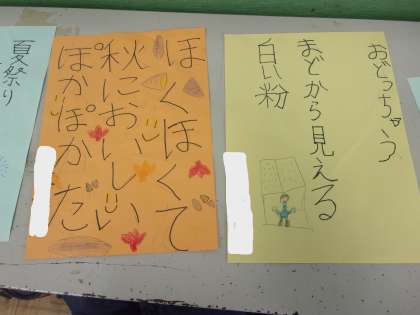 おどっちゃう
まどから見える
白い粉
ほくほくて
秋においしい
ぽかぽかた
夏祭り